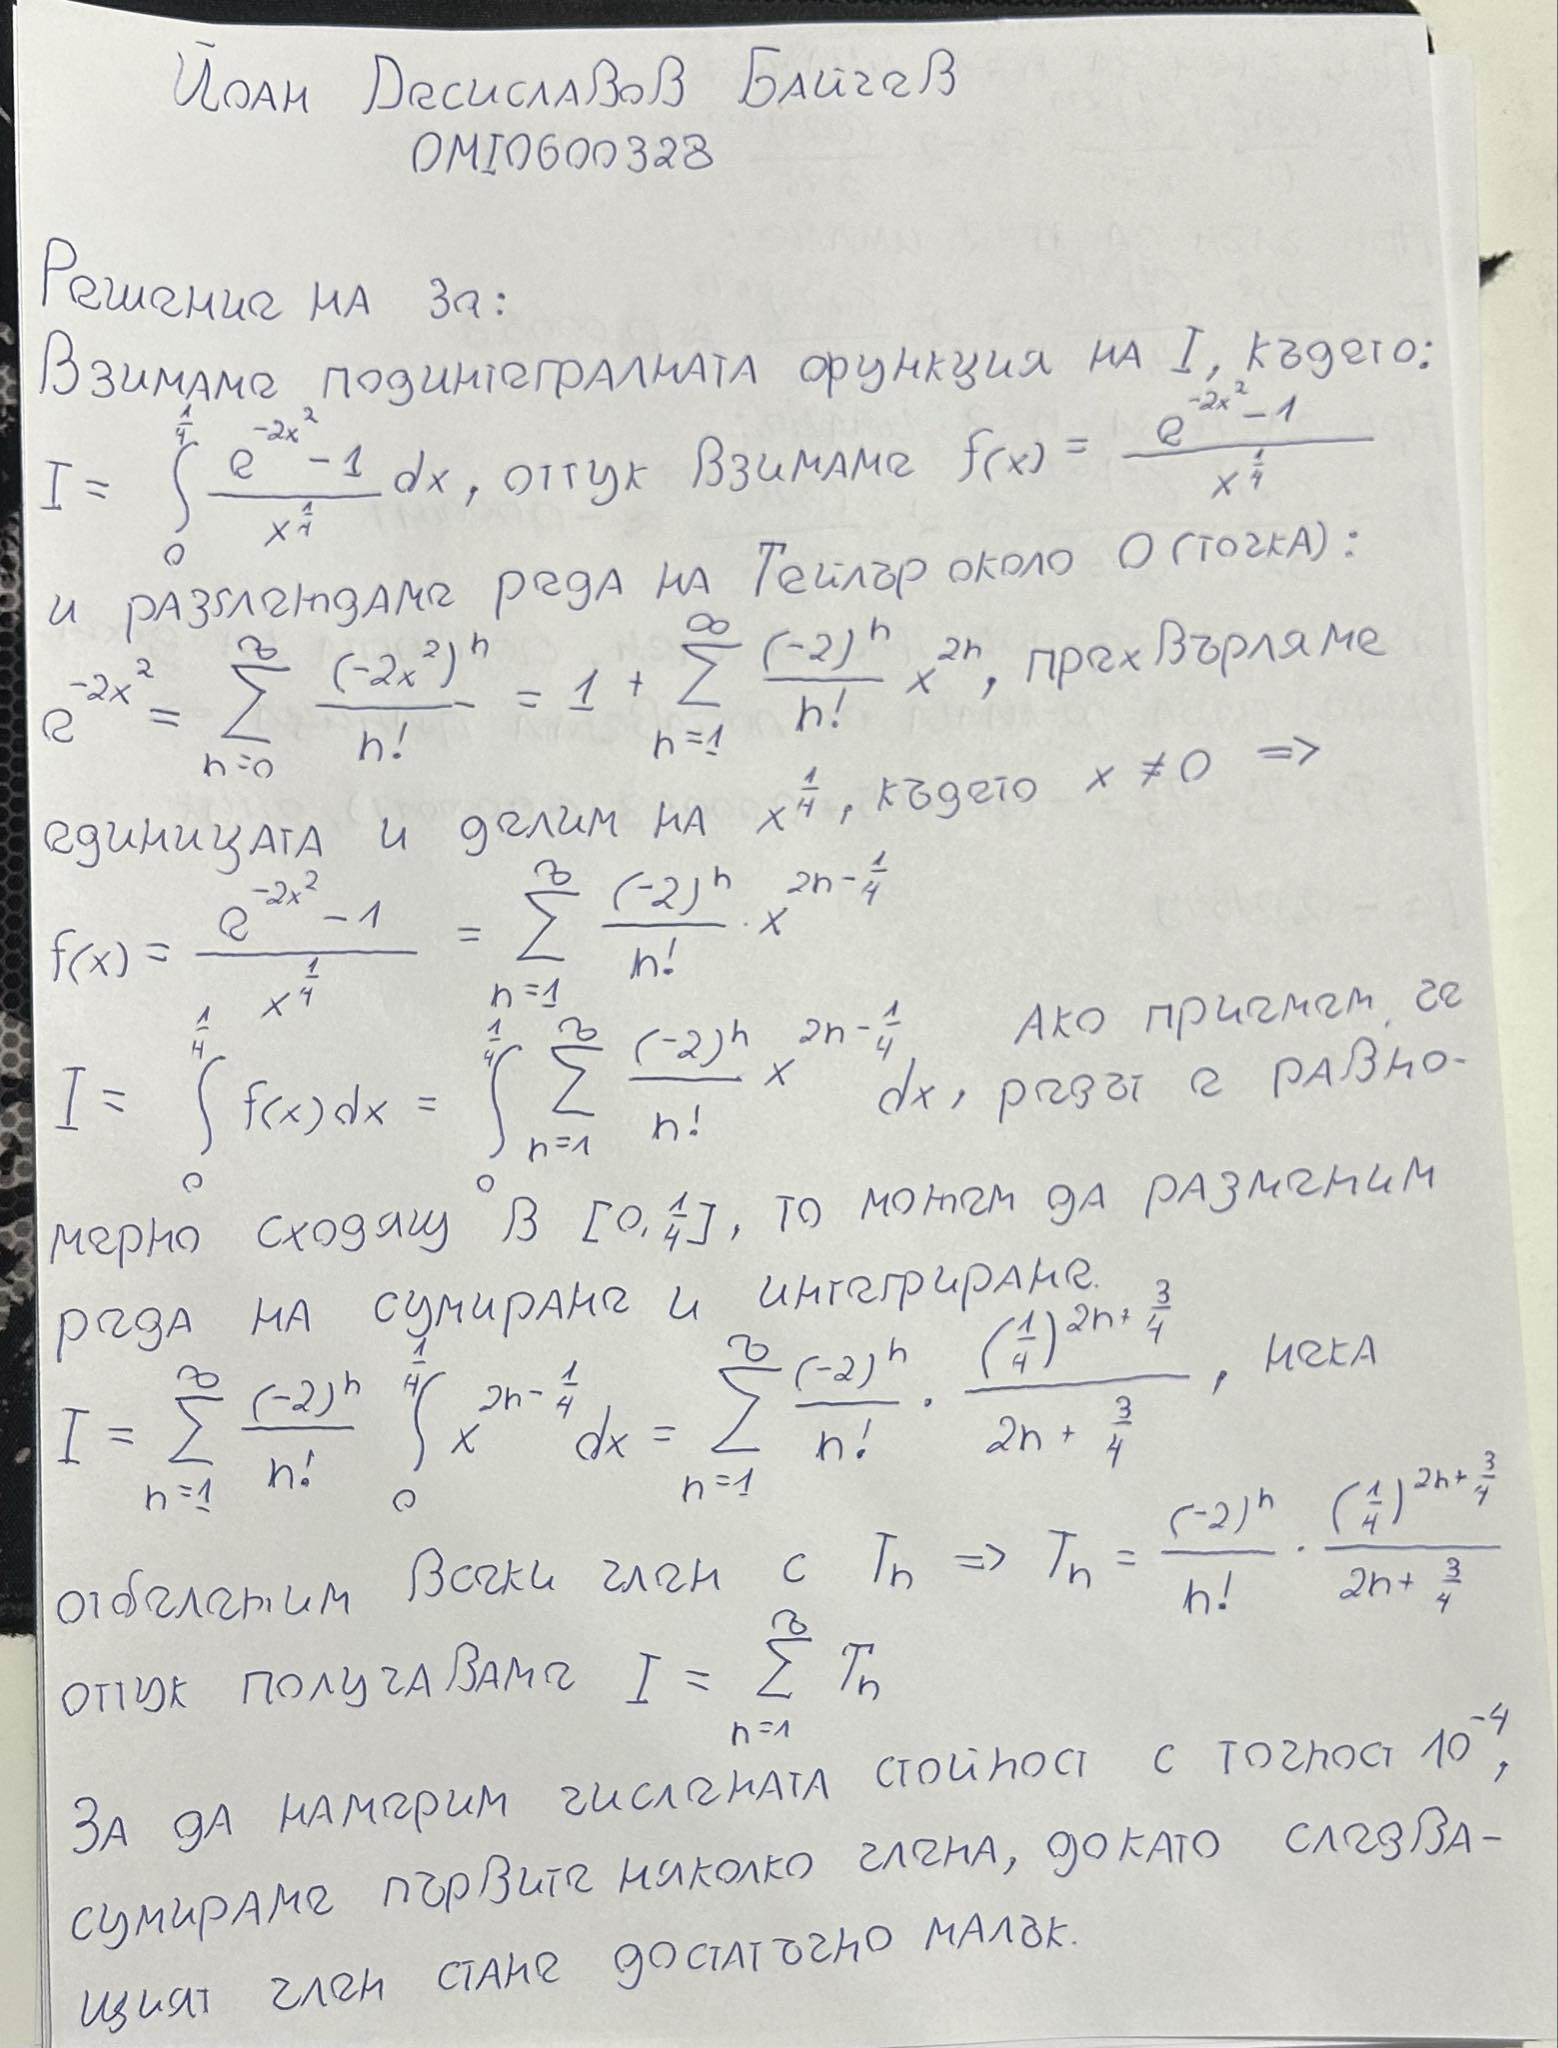 Йоан Десиславов Байчев
0MI0600328
Решение на 3а:
Взимаме подинтегралната функция на I, където:
I = ∫₀^{1/4} (e^{-2x²} - 1)/(x^{1/4}) dx, оттук взимаме f(x) = (e^{-2x²} - 1)/(x^{1/4})
и разглеждаме реда на Тейлър около 0 (точка):
e^{-2x²} = ∑_{n=0}^{∞} (-2x²)^n/n! = 1 + ∑_{n=1}^{∞} (-2)^n/n! x^{2n}, прехвърляме
единицата и делим на x^{1/4}, където x ≠ 0 =>
f(x) = (e^{-2x²} - 1)/(x^{1/4}) = ∑_{n=1}^{∞} (-2)^n/n! · x^{2n - 1/4}
I = ∫₀^{1/4} f(x) dx = ∫₀^{1/4} ∑_{n=1}^{∞} (-2)^n/n! x^{2n - 1/4} dx, Ако приемем, че редът е равно-
мерно сходящ в [0, 1/4], то можем да разменим
реда на сумиране и интегриране.
I = ∑_{n=1}^{∞} (-2)^n/n! ∫₀^{1/4} x^{2n - 1/4} dx = ∑_{n=1}^{∞} (-2)^n/n! · (1/4)^{2n + 3/4}/(2n + 3/4), нека
отбележим всеки член с Tn => Tn = (-2)^n/n! · (1/4)^{2n + 3/4}/(2n + 3/4)
оттук получаваме I = ∑_{n=1}^{∞} Tn
За да намерим числената стойност с точност 10^{-4},
сумираме първите няколко члена, докато следва-
щият член стане достатъчно малък.